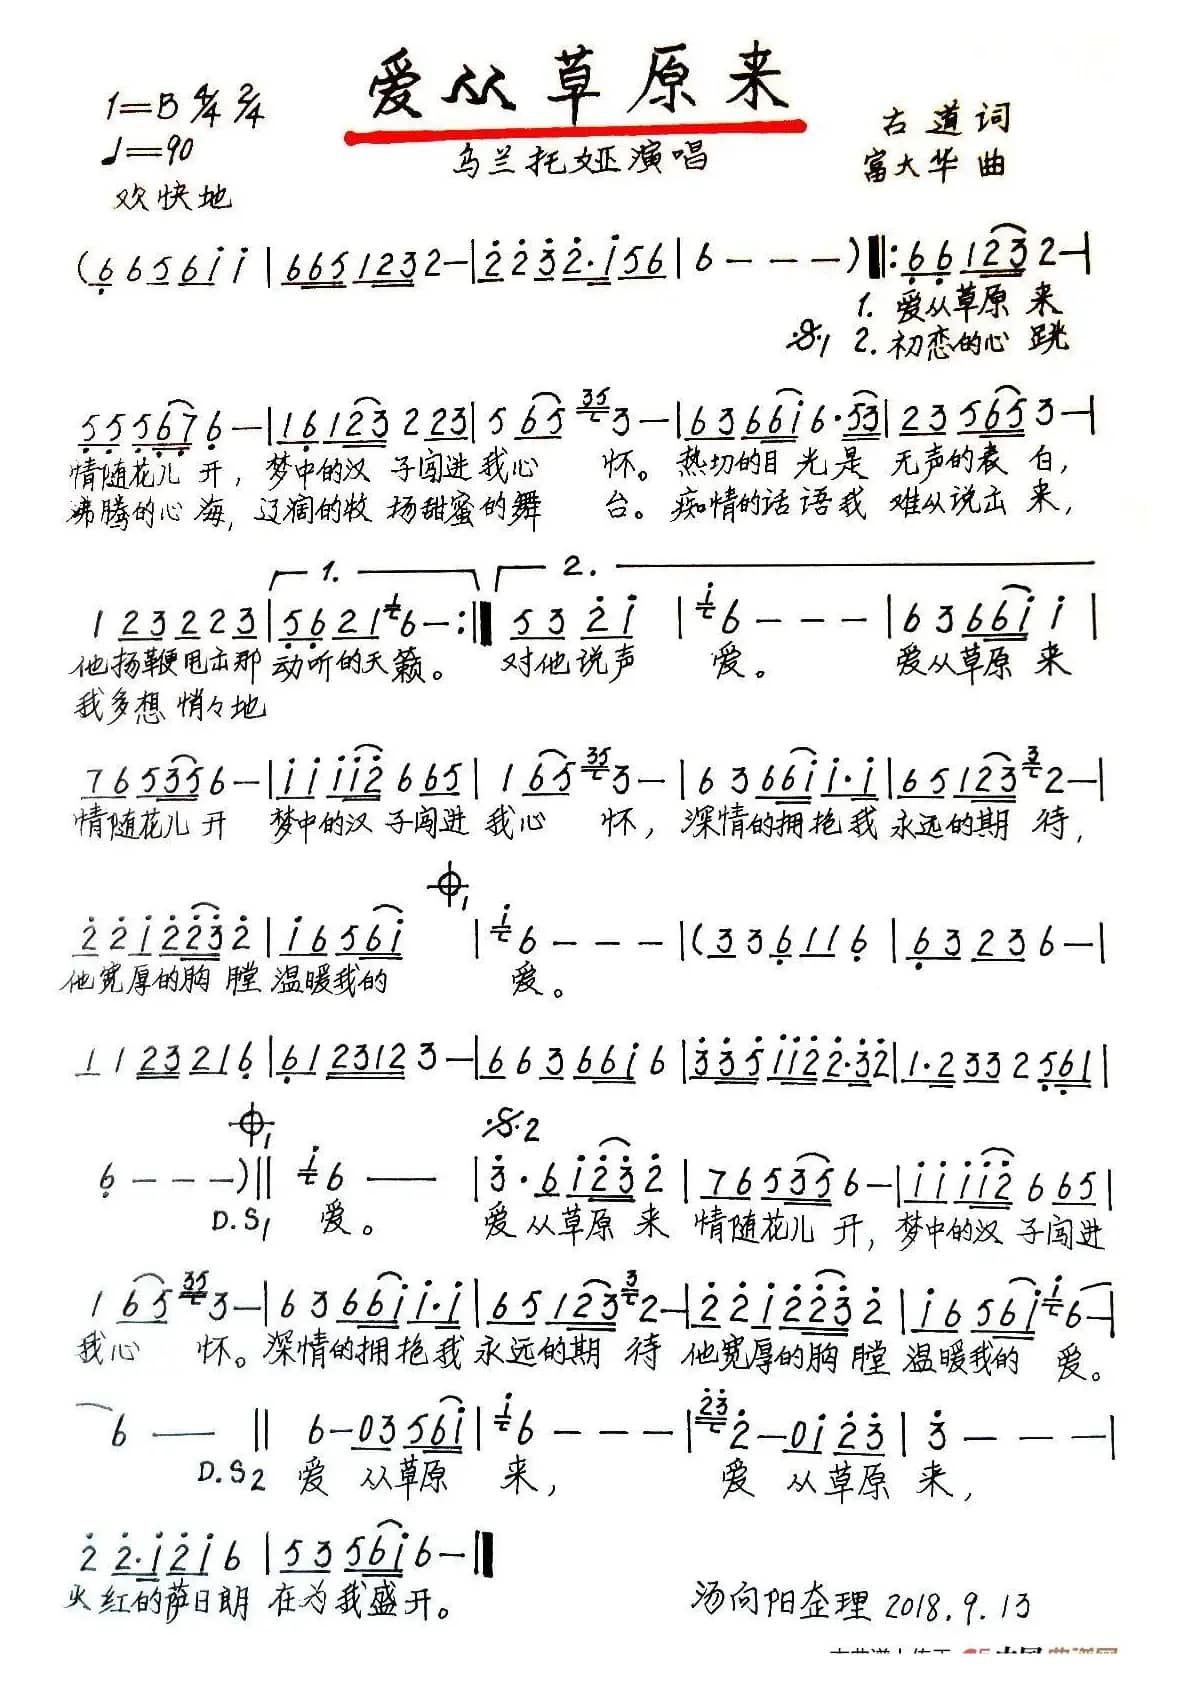 爱从草原来
1=B 4/4 2/4
♩=90
欢快地
乌兰托娅演唱
古道词
富大华 曲
(6 6 5 6 i i | 6 6 5 1 2 3 2 — | 2 2 3 2 · i 5 6 | 6 — — — ) ‖: 6 6 1 2 3 2 — |
1. 爱从草原 来
𝄋1 2. 初恋的心 跳
5 5 5 6 7 6 — | 1 6 1 2 3 2 2 3 | 5 6 5 35 3 — | 6 3 6 6 i 6 · 5 3 | 2 3 5 6 5 3 — |
情随花儿 开, 梦中的汉 子闯进 我心 怀。 热切的目 光是 无声的表 白,
沸腾的心 海, 辽阔的牧 场甜蜜 的舞 台。 痴情的话 语我 难从说出 来,
1. 2.
1 2 3 2 2 3 | 5 6 2 1 6 — :‖ 5 3 2 i | i 6 — — — | 6 3 6 6 i i |
他扬鞭甩出那 动听的天籁。 对他说声 爱。 爱从草原 来
我多想 悄々地
7 6 5 3 5 6 — | i i i i 2 6 6 5 | 1 6 5 35 3 — | 6 3 6 6 i i · i | 6 5 1 2 3 3 2 — |
情随花儿 开 梦中的汉 子闯进 我心 怀, 深情的拥 抱我 永远的期 待,
𝄌1
2 2 i 2 2 3 2 | i 6 5 6 i | i 6 — — — | (3 3 6 1 1 6 | 6 3 2 3 6 — |
他宽厚的胸 膛 温暖我的 爱。
1 1 2 3 2 1 6 | 6 1 2 3 1 2 3 — | 6 6 3 6 6 i 6 | 3 3 5 i i 2 2 · 3 2 | 1 · 2 3 3 2 5 6 1 |
𝄌1 𝄋2
6 — — — ) ‖ i 6 — — | 3 · 6 i 2 3 2 | 7 6 5 3 5 6 — | i i i i 2 6 6 5 |
D.S1 爱。 爱从草原 来 情随花儿 开, 梦中的汉 子闯进
1 6 5 35 3 — | 6 3 6 6 i i · i | 6 5 1 2 3 3 2 — | 2 2 i 2 2 3 2 | i 6 5 6 i i 6 — |
我心 怀。 深情的拥 抱我 永远的期 待 他宽厚的胸 膛 温暖我的 爱。
6 — — ‖ 6 — 0 3 5 6 i | i 6 — — — | 23 2 — 0 i 2 3 | 3 — — — |
D.S2 爱 从草原 来, 爱 从草原 来,
2 2 · i 2 i 6 | 5 3 5 6 i 6 — ‖
火 红的萨日朗 在为我盛 开。
汤向阳整理 2018.9.13